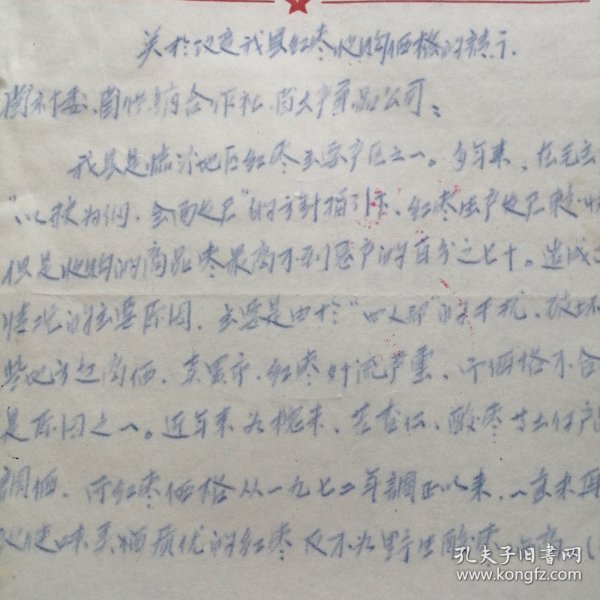 关于改变我县红枣收购价格的请示
国计委、国供销合作社、省土产果品公司：
我县是临汾地区红枣主要产区之一。多年来，在毛主
"以粮为纲，全面发展"的方针指引下，红枣生产发展很
但是收购的商品枣最高不到总产的百分之七十。造成
情况的主要原因，主要是由于"四人邦"的干扰、破坏
些地方起高価，卖黑市，红枣外流严重，而価格不合
是原因之一。近年来为槐米、酸枣等土付产品
調価，而红枣価格从一九七二年調正以来，一直未再
致使味美质优的红枣反不如野生酸枣
孔夫子旧书网
www.kongfz.com